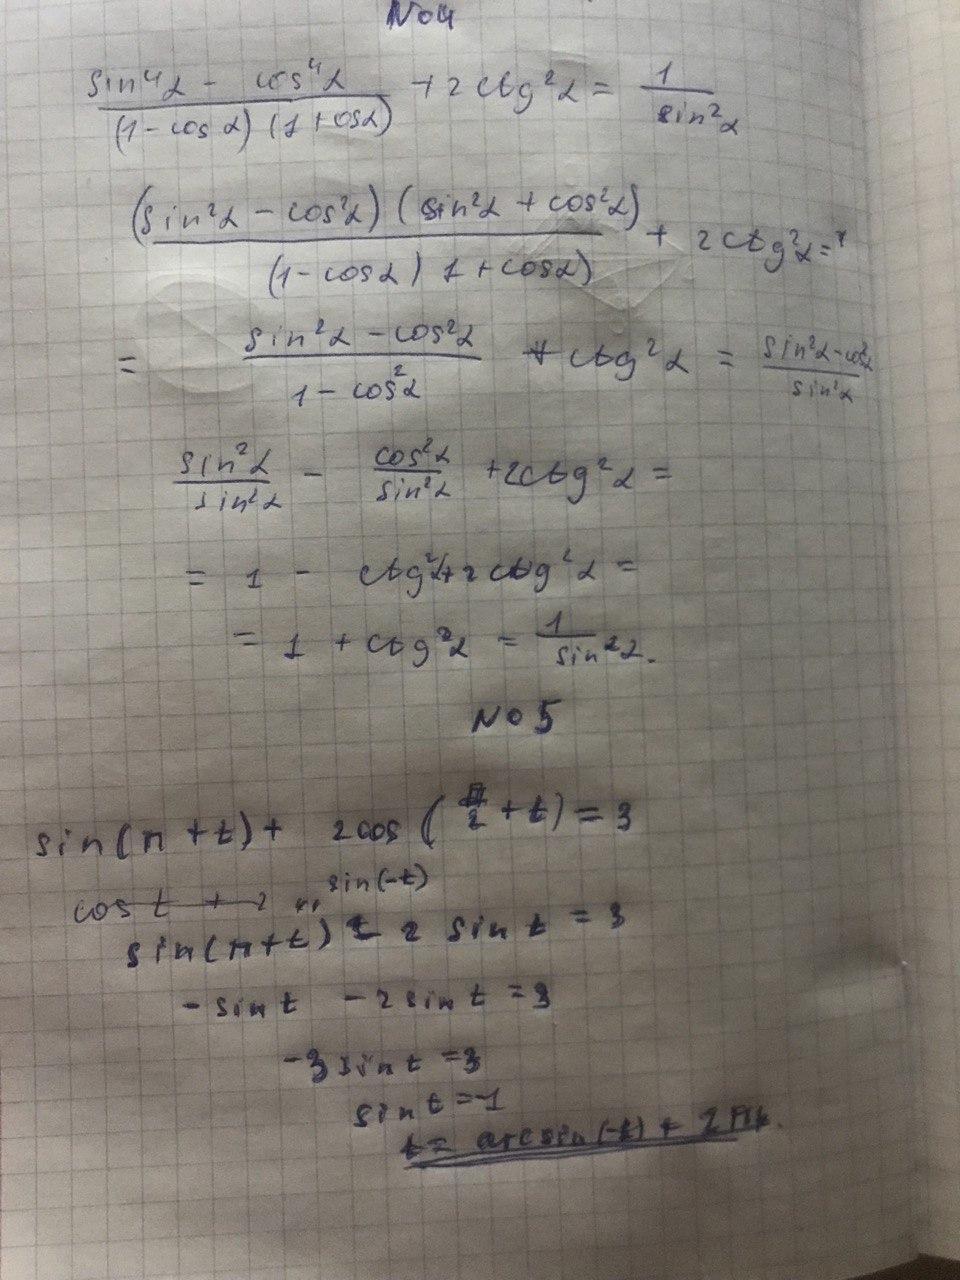 No4
sin⁴α - cos⁴α / (1 - cos α) (1 + cosα) + 2 ctg²α = 1 / sin²α
(sin²α - cos²α) (sin²α + cos²α) / (1 - cosα) 1 + cosα) + 2ctg²α =
= sin²α - cos²α / 1 - cos²α + ctg²α = sin²α - cos²α / sin²α
sin²α / sin²α - cos²α / sin²α + 2ctg²α =
= 1 - ctg²α + 2 ctg²α =
= 1 + ctg²α = 1 / sin²α.
No 5
sin(π + t) + 2cos (π/2 + t) = 3
cos t + 2 sin(-t)
sin(π + t) - 2 sin t = 3
- sin t - 2 sin t = 3
-3 sin t = 3
sin t = -1
t = arcsin(-1) + 2πk.